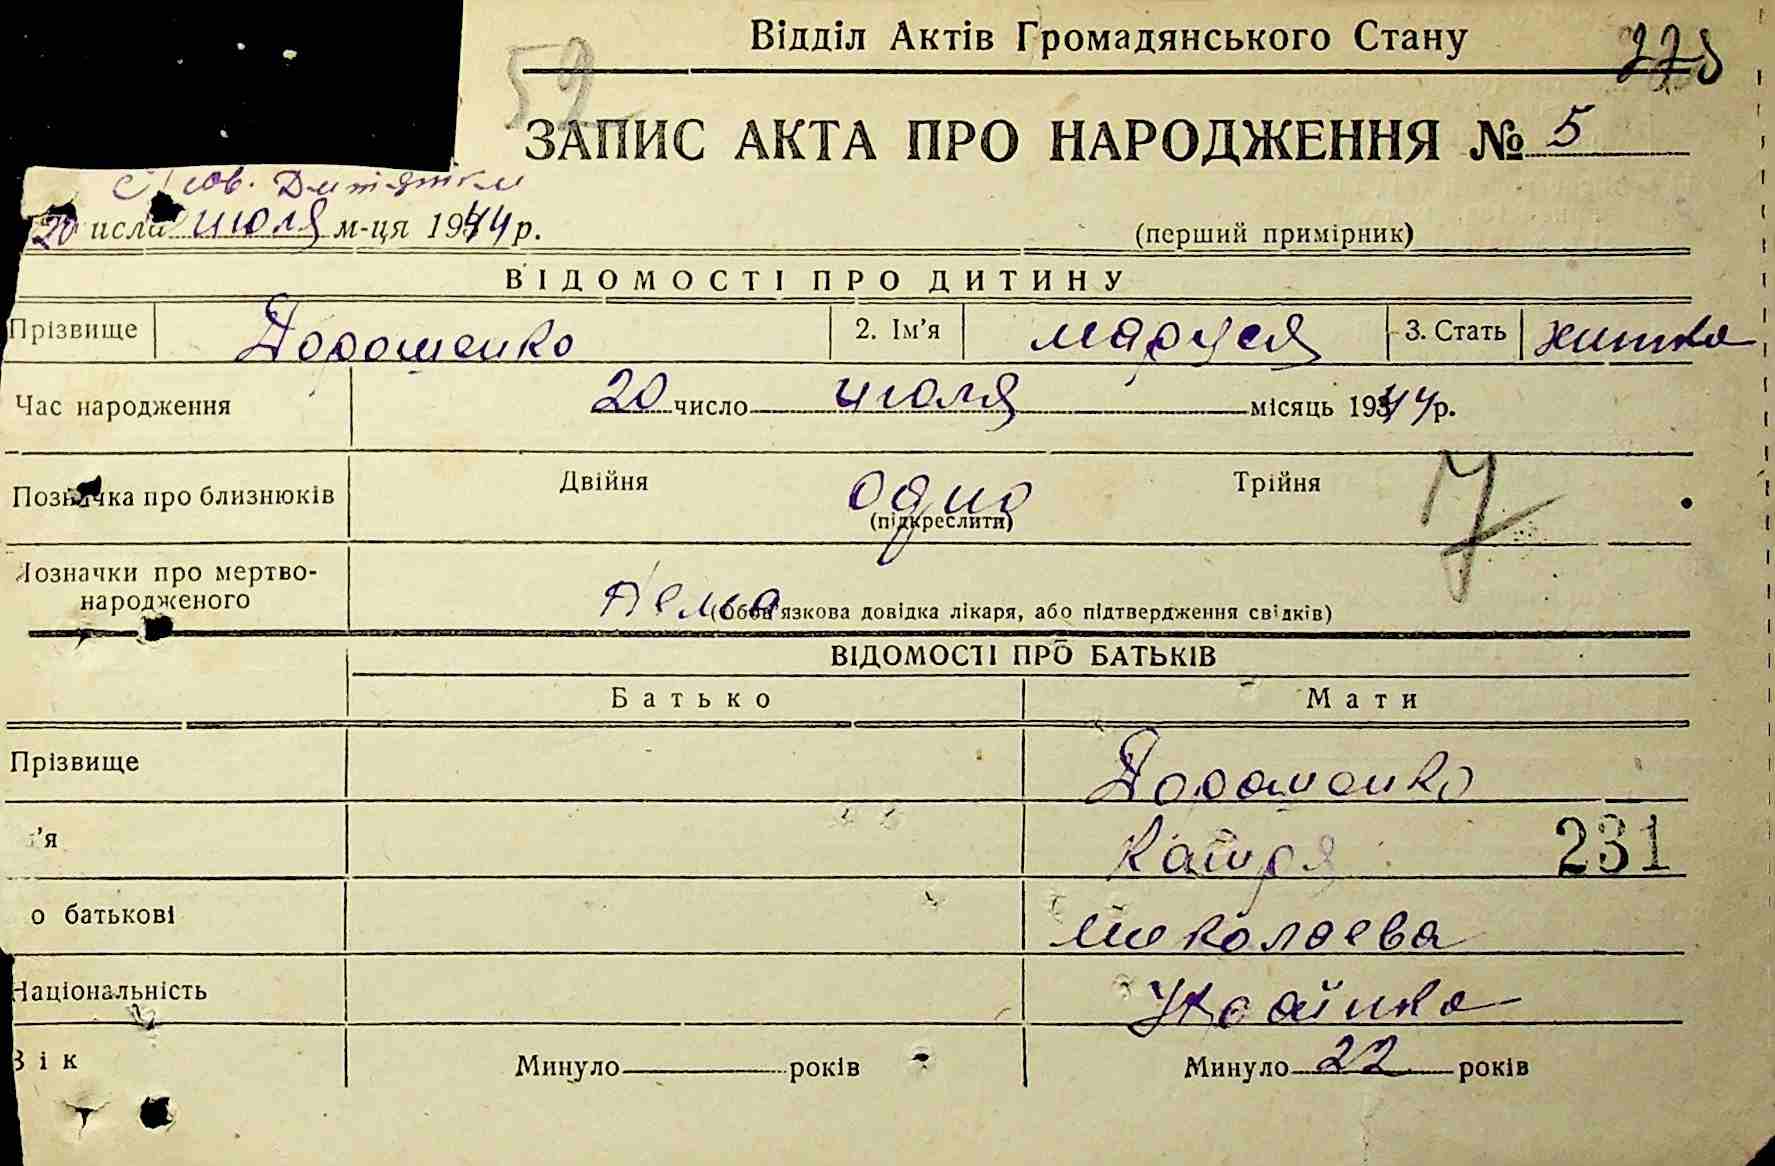 Відділ Актів Громадянського Стану
52
ЗАПИС АКТА ПРО НАРОДЖЕННЯ № 5
Дитятки
20 исла июля м-ця 1944 р.
(перший примірник)
ВІДОМОСТІ ПРО ДИТИНУ
Прізвище Дорошенко 2. Ім'я Маруся 3. Стать жинка
Час народження 20 число июля місяць 1944 р.
Позначка про близнюків Двійня одно Трійня
(підкреслити)
Позначки про мертво-
народженого Нема (Обов'язкова довідка лікаря, або підтвердження свідків)
ВІДОМОСТІ ПРО БАТЬКІВ
Батько Мати
Прізвище Дорошенко
'я Катря 231
о батькові Миколаева
Національність Украінка
Вік Минуло років Минуло 22 років